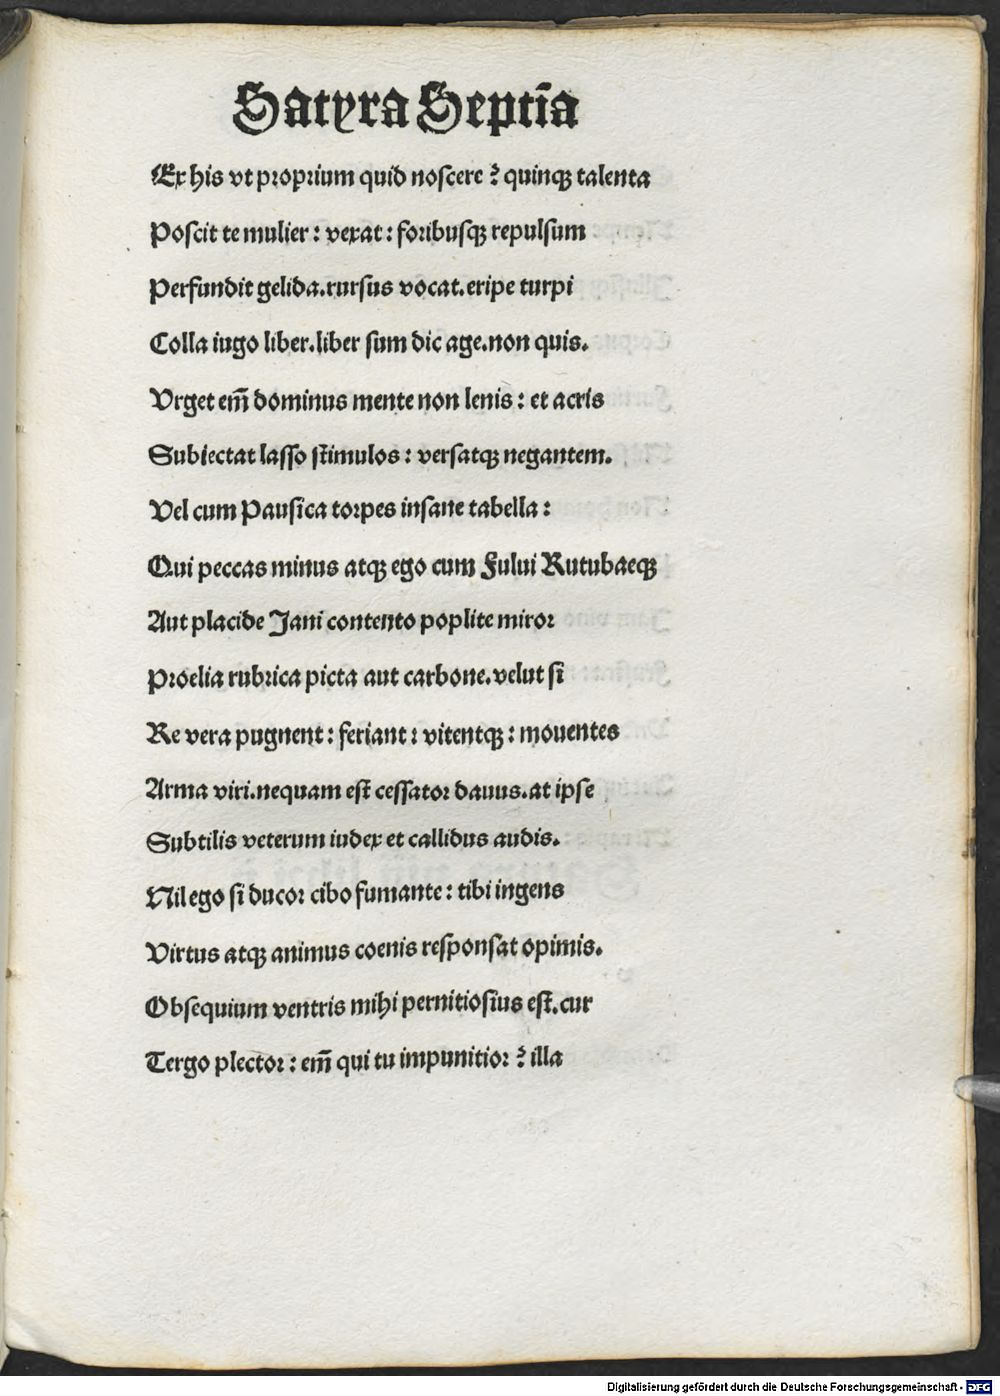 Satyra Septīa
Ex his vt proprium quid noscere? quinqꝫ talenta
Poscit te mulier: vexat: foribusqꝫ repulsum
Perfundit gelida.rursus vocat.eripe turpi
Colla iugo liber.liber sum dic age.non quis.
Vrget em̄ dominus mente non lenis: et acris
Subiectat lasso stimulos: versatqꝫ negantem.
Vel cum Pausica torpes insane tabella:
Qui peccas minus atqꝫ ego cum Fului Rutubaeqꝫ
Aut placide Jani contento poplite miror
Proelia rubrica picta aut carbone.velut si
Re vera pugnent: feriant: vitentqꝫ: mouentes
Arma viri.nequam est cessator dauus.at ipse
Subtilis veterum iudex et callidus audis.
Nil ego si ducor cibo fumante: tibi ingens
Virtus atqꝫ animus coenis responsat opimis.
Obsequium ventris mihi pernitiosius est.cur
Tergo plector: em̄ qui tu impunitior? illa
Digitalisierung gefördert durch die Deutsche Forschungsgemeinschaft - DFG